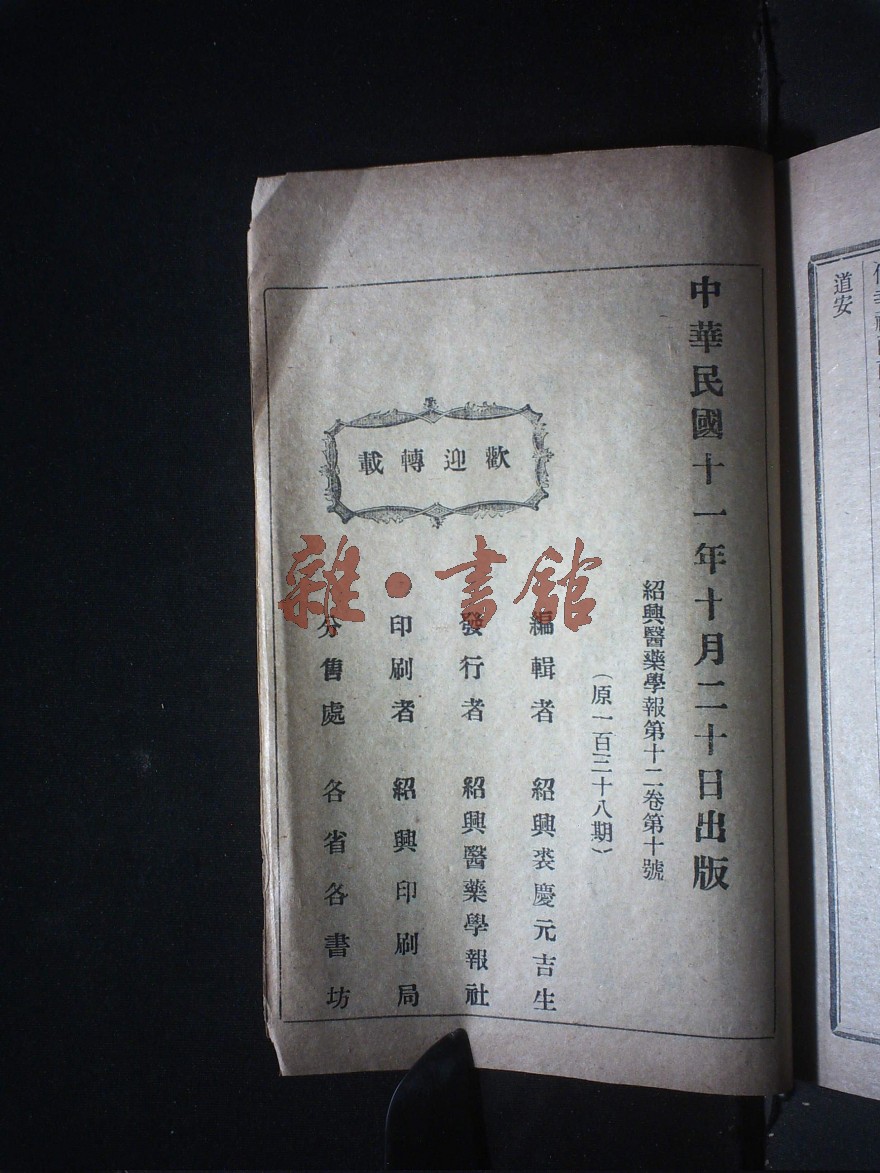 道安
中華民國十一年十月二十日出版
紹興醫藥學報第十二卷第十號
（原一百三十八期）
歡迎轉載
編輯者 紹興裘慶元吉生
發行者 紹興醫藥學報社
印刷者 紹興印刷局
分售處 各省各書坊
雜·書館